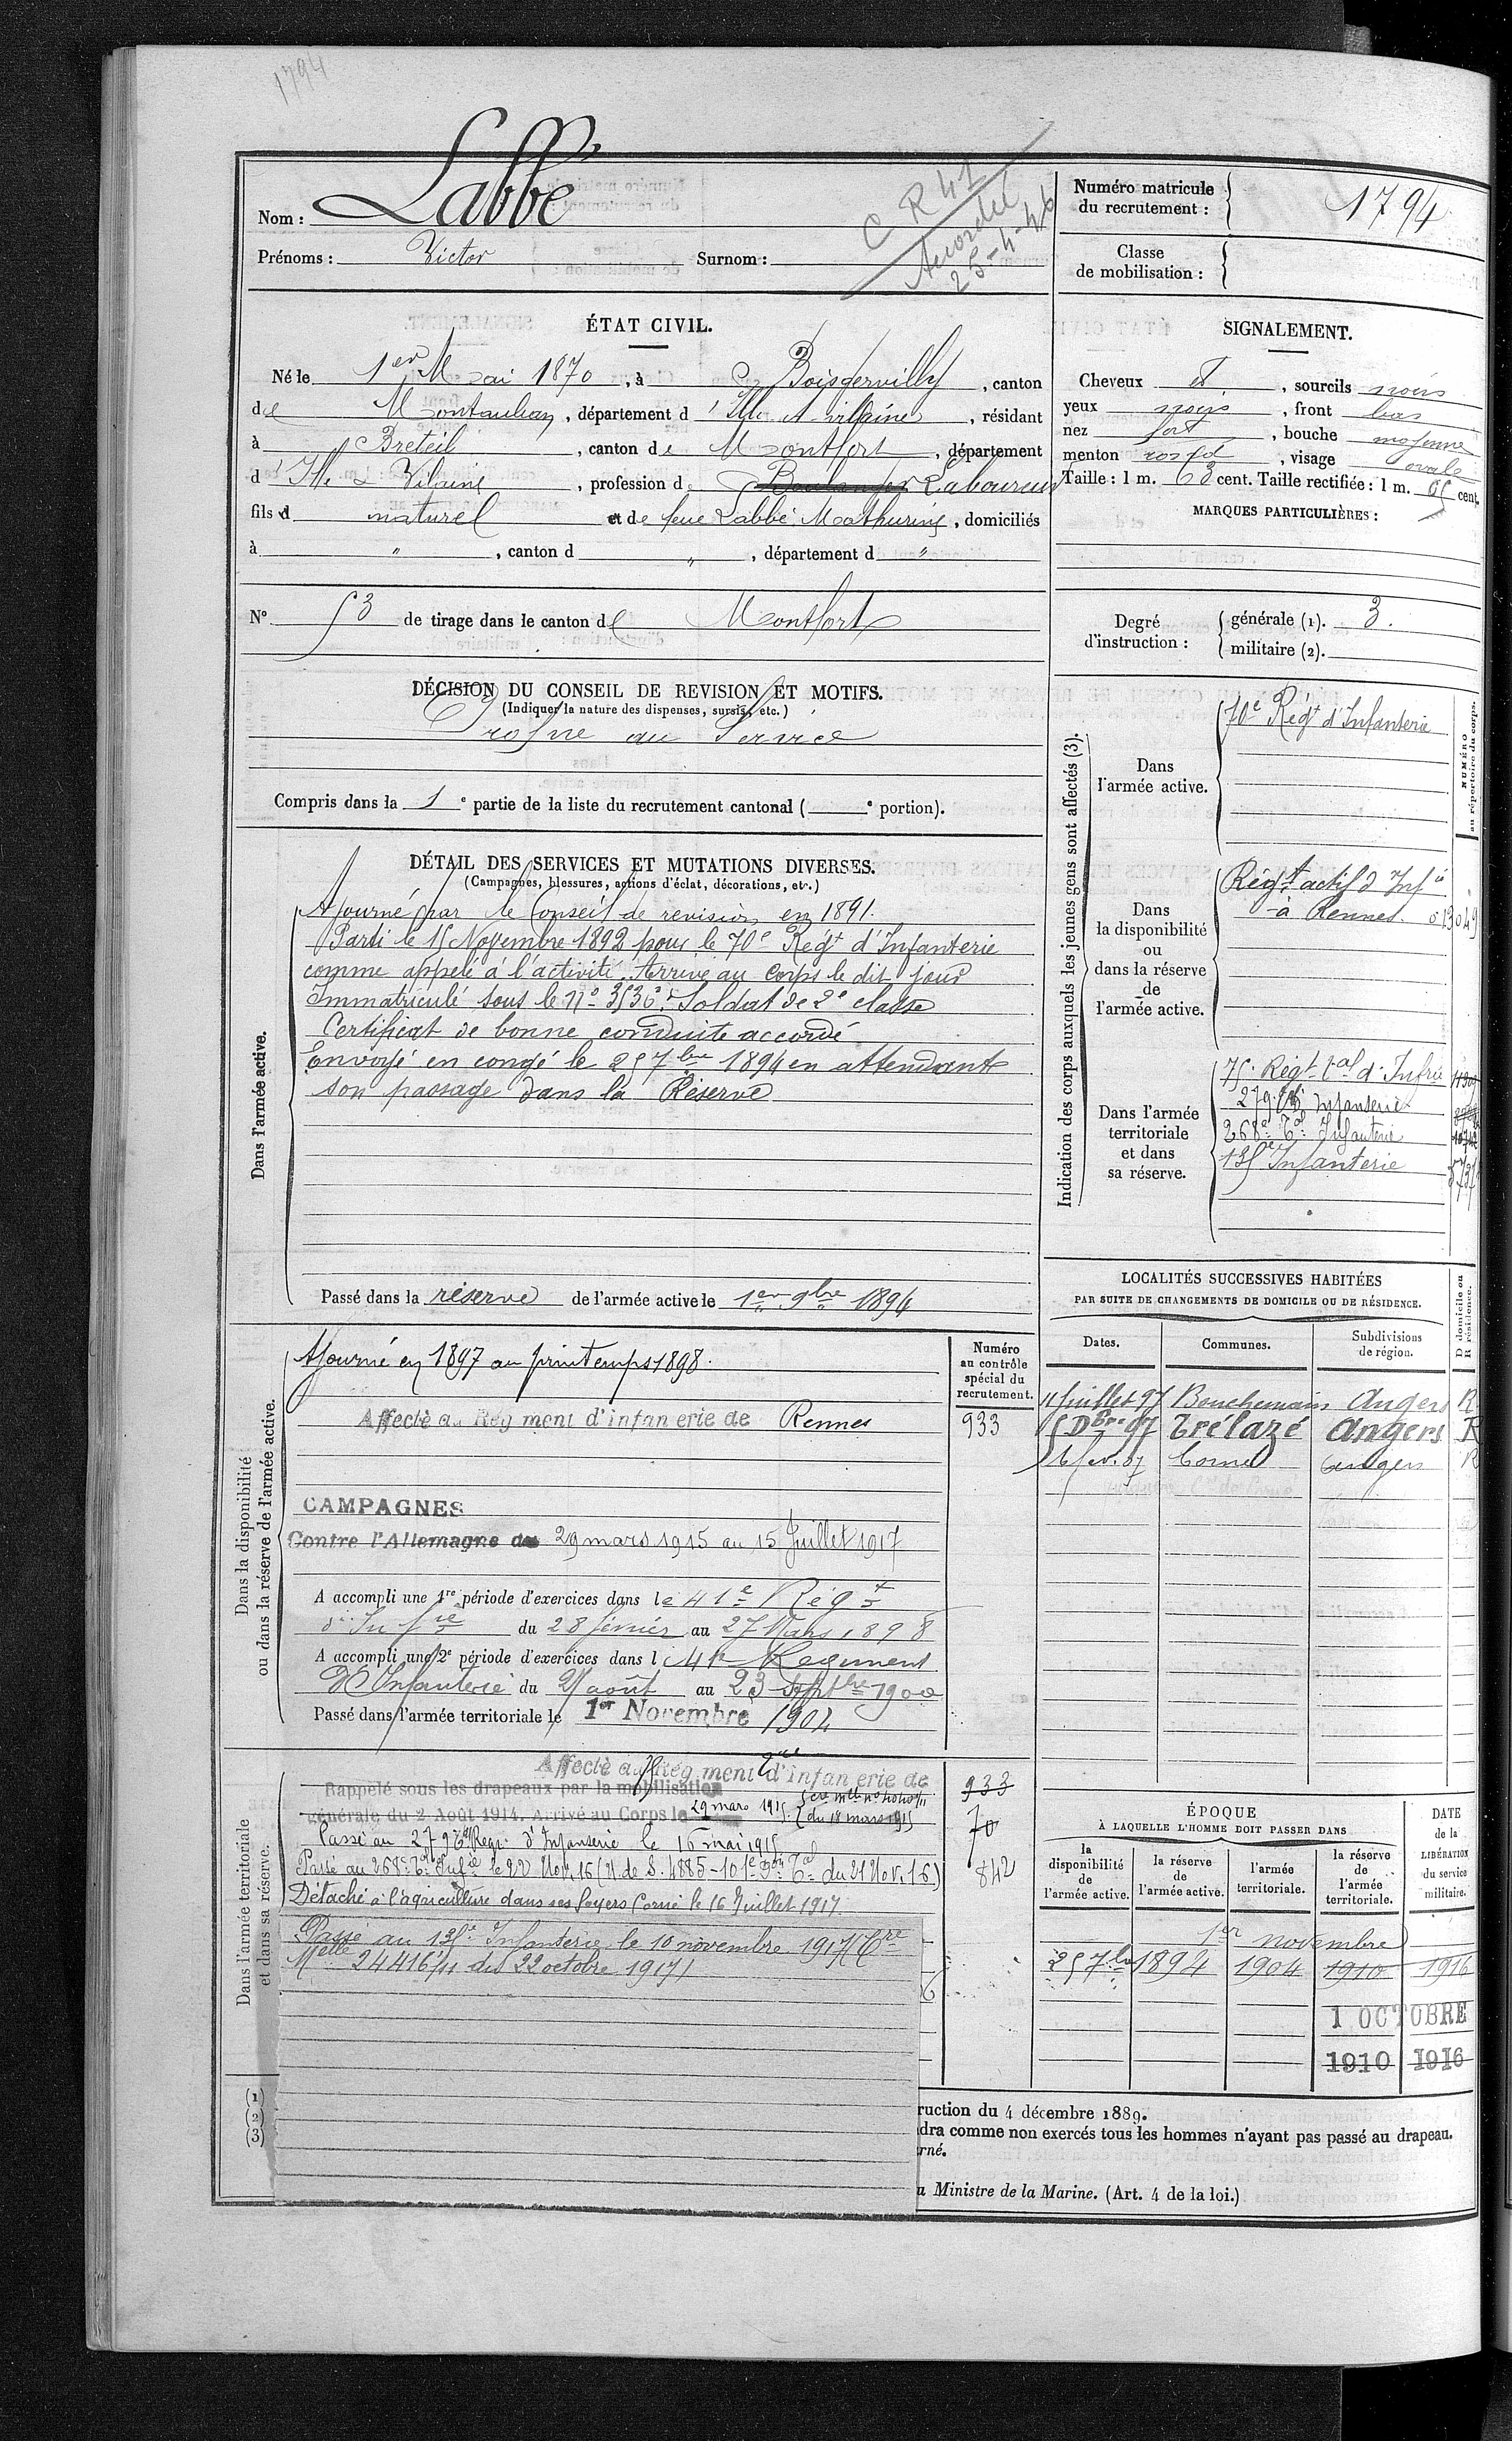 1794
Nom : Labbé
Prénoms : Victor Surnom :
C R 41
Accordée
25-4-46
Numéro matricule du recrutement : 1794
Classe de mobilisation :
ÉTAT CIVIL.
Né le 1er Mai 1870, à Boisgervilly, canton
de Montauban, département d'Ille et vilaine, résidant
à Breteil, canton de Montfort, département
d'Ille & Vilaine, profession de Boulanger Laboureur
fils d naturel et de feue Labbé Mathurine, domiciliés
à " , canton d " , département d "
N° 53 de tirage dans le canton de Montfort
SIGNALEMENT.
Cheveux et, sourcils noirs
yeux noirs, front bas
nez fort, bouche moyenne
menton rond, visage ovale
Taille : 1 m. 63 cent. Taille rectifiée : 1 m. 65 cent.
MARQUES PARTICULIÈRES :
Degré d'instruction : générale (1). 3.
militaire (2).
DÉCISION DU CONSEIL DE REVISION ET MOTIFS.
(Indiquer la nature des dispenses, sursis, etc.)
Propre au Service
Compris dans la 1e partie de la liste du recrutement cantonal ( e portion).
DÉTAIL DES SERVICES ET MUTATIONS DIVERSES.
(Campagnes, blessures, actions d'éclat, décorations, etc.)
Dans l'armée active.
Ajourné par le Conseil de revision en 1891.
Parti le 15 Novembre 1892 pour le 70e Régt d'Infanterie
comme appelé à l'activité. Arrivé au Corps le dit jour
Immatriculé sous le N° 3536. Soldat de 2e classe
Certificat de bonne conduite accordé
Envoyé en congé le 25 7bre 1894 en attendant
son passage dans la Réserve
Passé dans la réserve de l'armée active le 1er 9bre 1894
Indication des corps auxquels les jeunes gens sont affectés (3).
NUMÉRO au répertoire du corps.
Dans l'armée active.
70e Régt d'Infanterie
Dans la disponibilité ou dans la réserve de l'armée active.
Régt actif d'Infie
à Rennes. 013049
Dans l'armée territoriale et dans sa réserve.
75e Régt tal d'Infrie
279e Infanterie
268e Tal Infanterie
135e Infanterie
Dans la disponibilité ou dans la réserve de l'armée active.
Numéro au contrôle spécial du recrutement.
Ajourné en 1897 au printemps 1898.
Affecté au Régiment d'infanterie de Rennes 933
CAMPAGNES
Contre l'Allemagne du 29 mars 1915 au 15 Juillet 1917
A accompli une 1re période d'exercices dans le 41e Régt
d'Infre du 28 février au 27 Mars 1898
A accompli une 2e période d'exercices dans l 41e Regiment
D'Infanterie du 27 août au 23 Septbre 1900
Passé dans l'armée territoriale le 1er Novembre 1904
LOCALITÉS SUCCESSIVES HABITÉES
PAR SUITE DE CHANGEMENTS DE DOMICILE OU DE RÉSIDENCE.
Dates. Communes. Subdivisions de région. D domicile ou R résidence.
11 Juillet 97 Bouchemaine Angers R
5 Dbre 97 Trélazé Angers R
Corné Angers R
Dans l'armée territoriale et dans sa réserve.
Affecté au Régiment d'infanterie de 933
Rappelé sous les drapeaux par la mobilisation
générale du 2 Août 1914. Arrivé au Corps le 29 mars 1915. du 18 mars 1915 70
Passé au 279e Tal Régt d'Infanterie le 16 mai 1915
Passé au 268e Tal Infie le 22 Nov. 16 (N. de S. 4885-10 du 21 Nov. 16) 842
Détaché à l'agriculture dans ses foyers Corné le 16 Juillet 1917.
Passé au 135e Infanterie le 10 novembre 1917 (Cre
Melle 24416/11 du 22 octobre 1917)
ÉPOQUE
À LAQUELLE L'HOMME DOIT PASSER DANS
la disponibilité de l'armée active. la réserve de l'armée active. l'armée territoriale. la réserve de l'armée territoriale. DATE de la LIBÉRATION du service militaire.
1er novembre
25 7bre 1894 1904 1910 1916
1 OCTOBRE
1910 1916
(1)
(2)
(3)
ruction du 4 décembre 1889.
dra comme non exercés tous les hommes n'ayant pas passé au drapeau.
rné.
u Ministre de la Marine. (Art. 4 de la loi.)